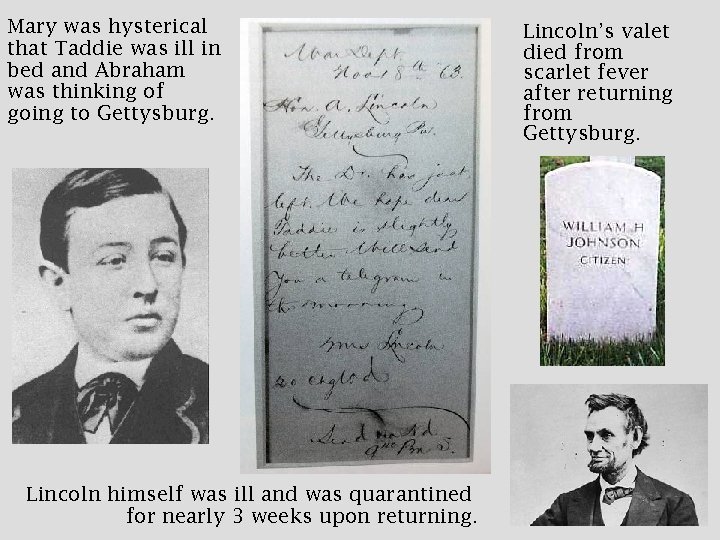 Mary was hysterical
that Taddie was ill in
bed and Abraham
was thinking of
going to Gettysburg.
War Dept.
Nov 18th '63.
Hon. A. Lincoln
Gettysburg Pa.
The Dr. has just
left. We hope dear
Taddie is slightly
better. Will send
you a telegram in
the morning
Mrs Lincoln
Send
Lincoln's valet
died from
scarlet fever
after returning
from
Gettysburg.
WILLIAM H
JOHNSON
CITIZEN
Lincoln himself was ill and was quarantined
for nearly 3 weeks upon returning.